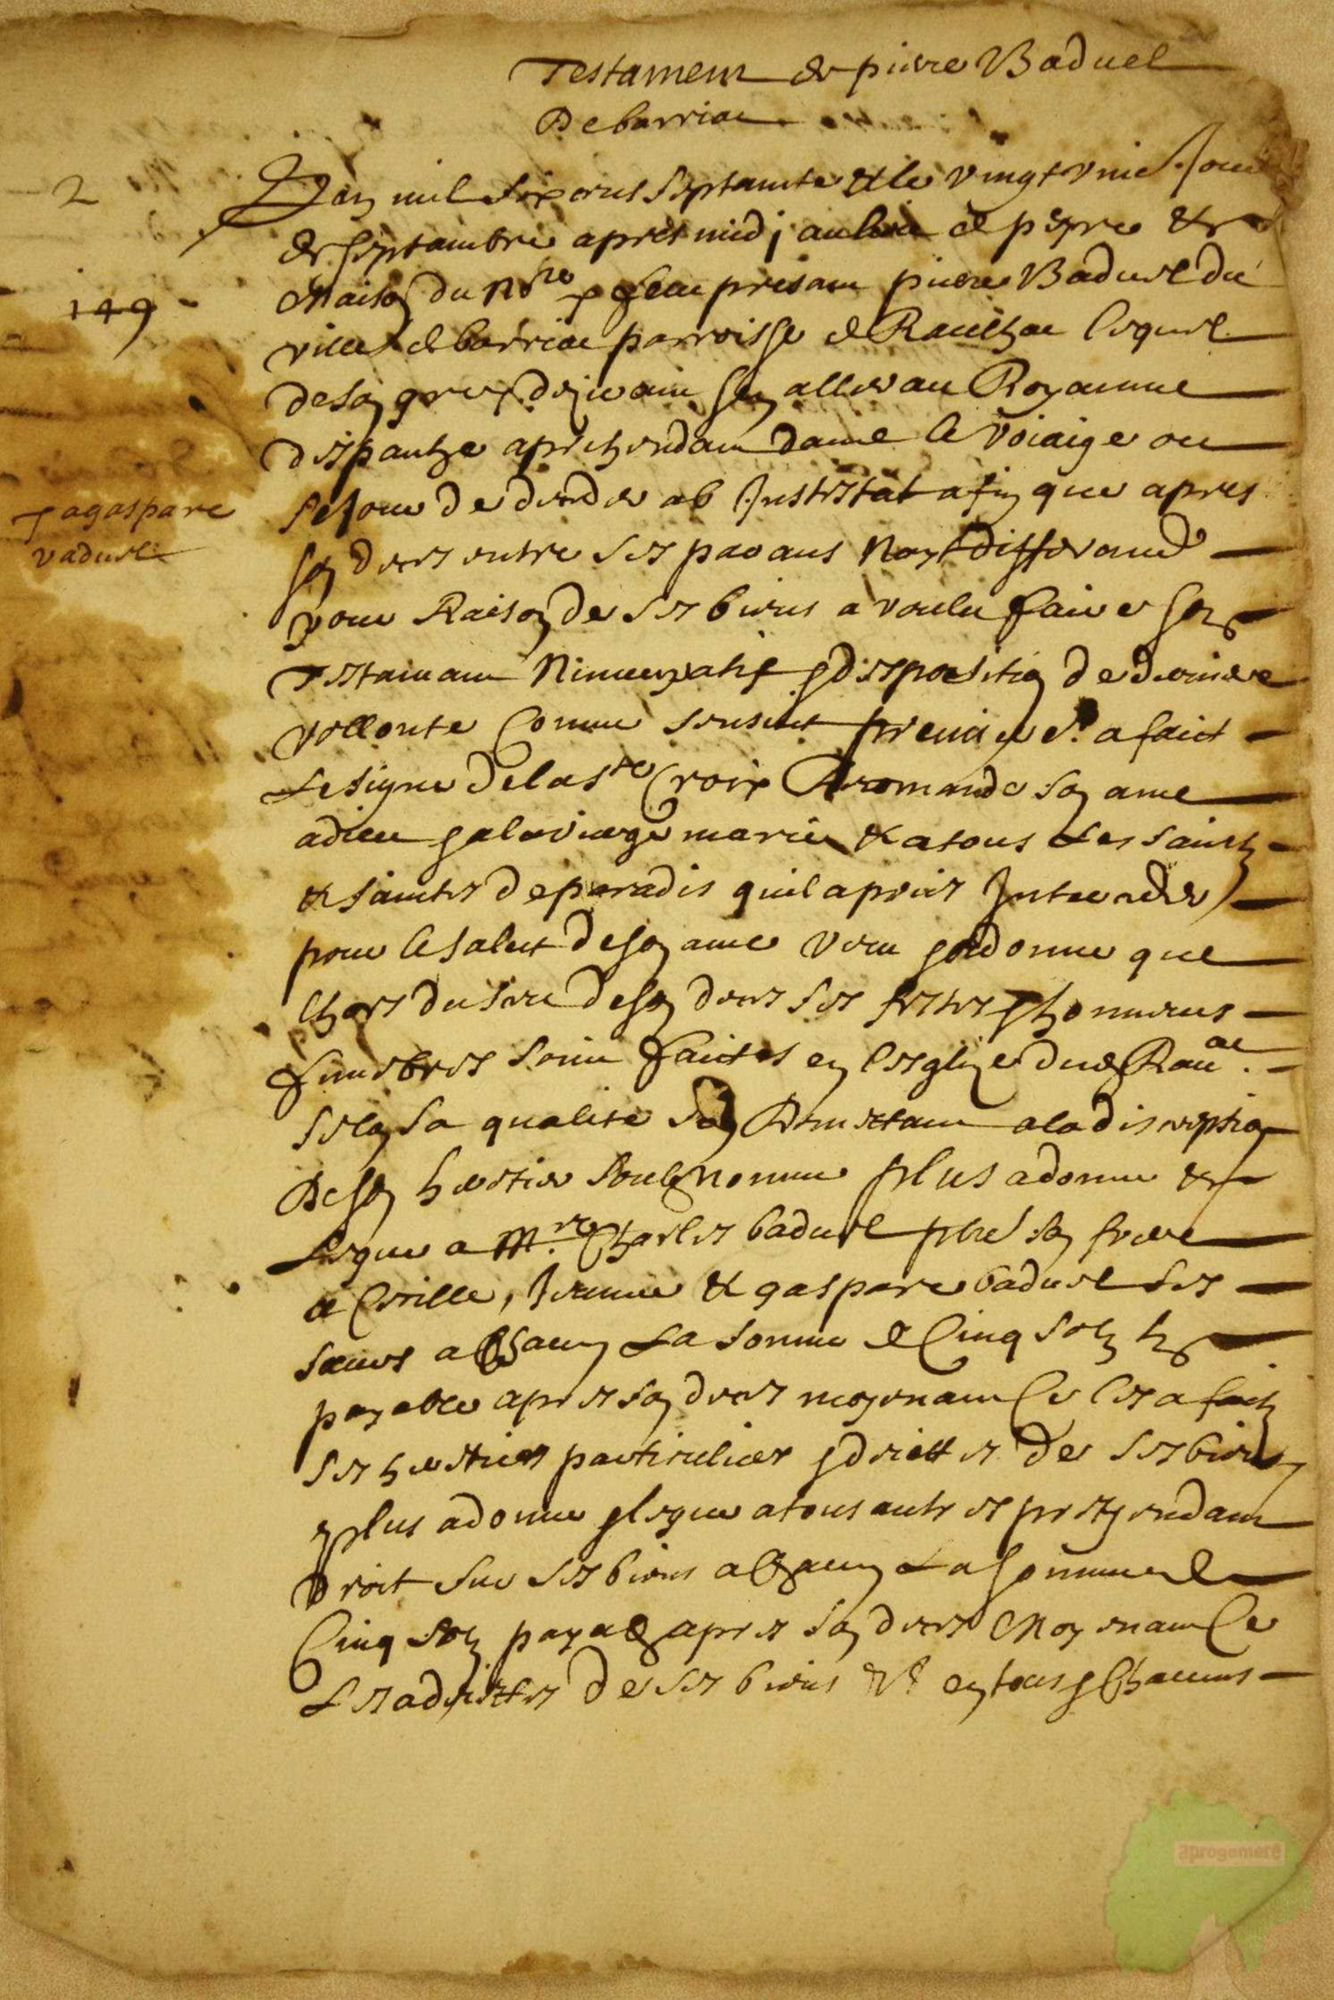 Testament de pierre Baduel
De barriac
2
Lan mil six cens septante & le vingt unie. Jour
de septambre apres midj au lieu de peyre &
149
Maison du no.re p feut presant pierre Baduel du
villaige de barriac parroisse de Raulhac lequel
de son gre desirant sen aller au Royaume
despanhe aprehendant dans le voiaige ou
sejour de deceder ab Intestat afin que apres
p a gaspare
vaduel
son deces entre ses parans nayt differand
pour Raison de ses biens a voulu faire son
Testamant Nuncupatif & dispozition de derniere
vollonte comme sensuit premierem.t a faict
Le signe de la s.te Croix Recomande son ame
a dieu & a la vierge marie & a tous Les saincts
& sainctes de paradis quil a pries Interceder
pour le salut de son ame veut & ordonne que
lhors du jour de son deces ses fretz & honneurs
funebres soint faictes en lesglize dud Rau.ac
selon sa qualite son Remettant a la discreption
De son heretier soubz nomme plus a donne &
Legue a M.re Charles baduel p.bre son frere
a Cirille, Jeanne & gaspare baduel ses
sœurs a Chacun La somme de Cinq solz &
payable apres son deces moyenant Ce Les a faictz
ses heretiers particuliers & driettes de ses biens
plus a donne & legue a tous autres prethendant
Droit sur ses biens a Chacun La somme de
Cinq solz payable apres son deces Moyenant Ce
Les a deietés de ses biens & en tous & Chacuns
aprogemere